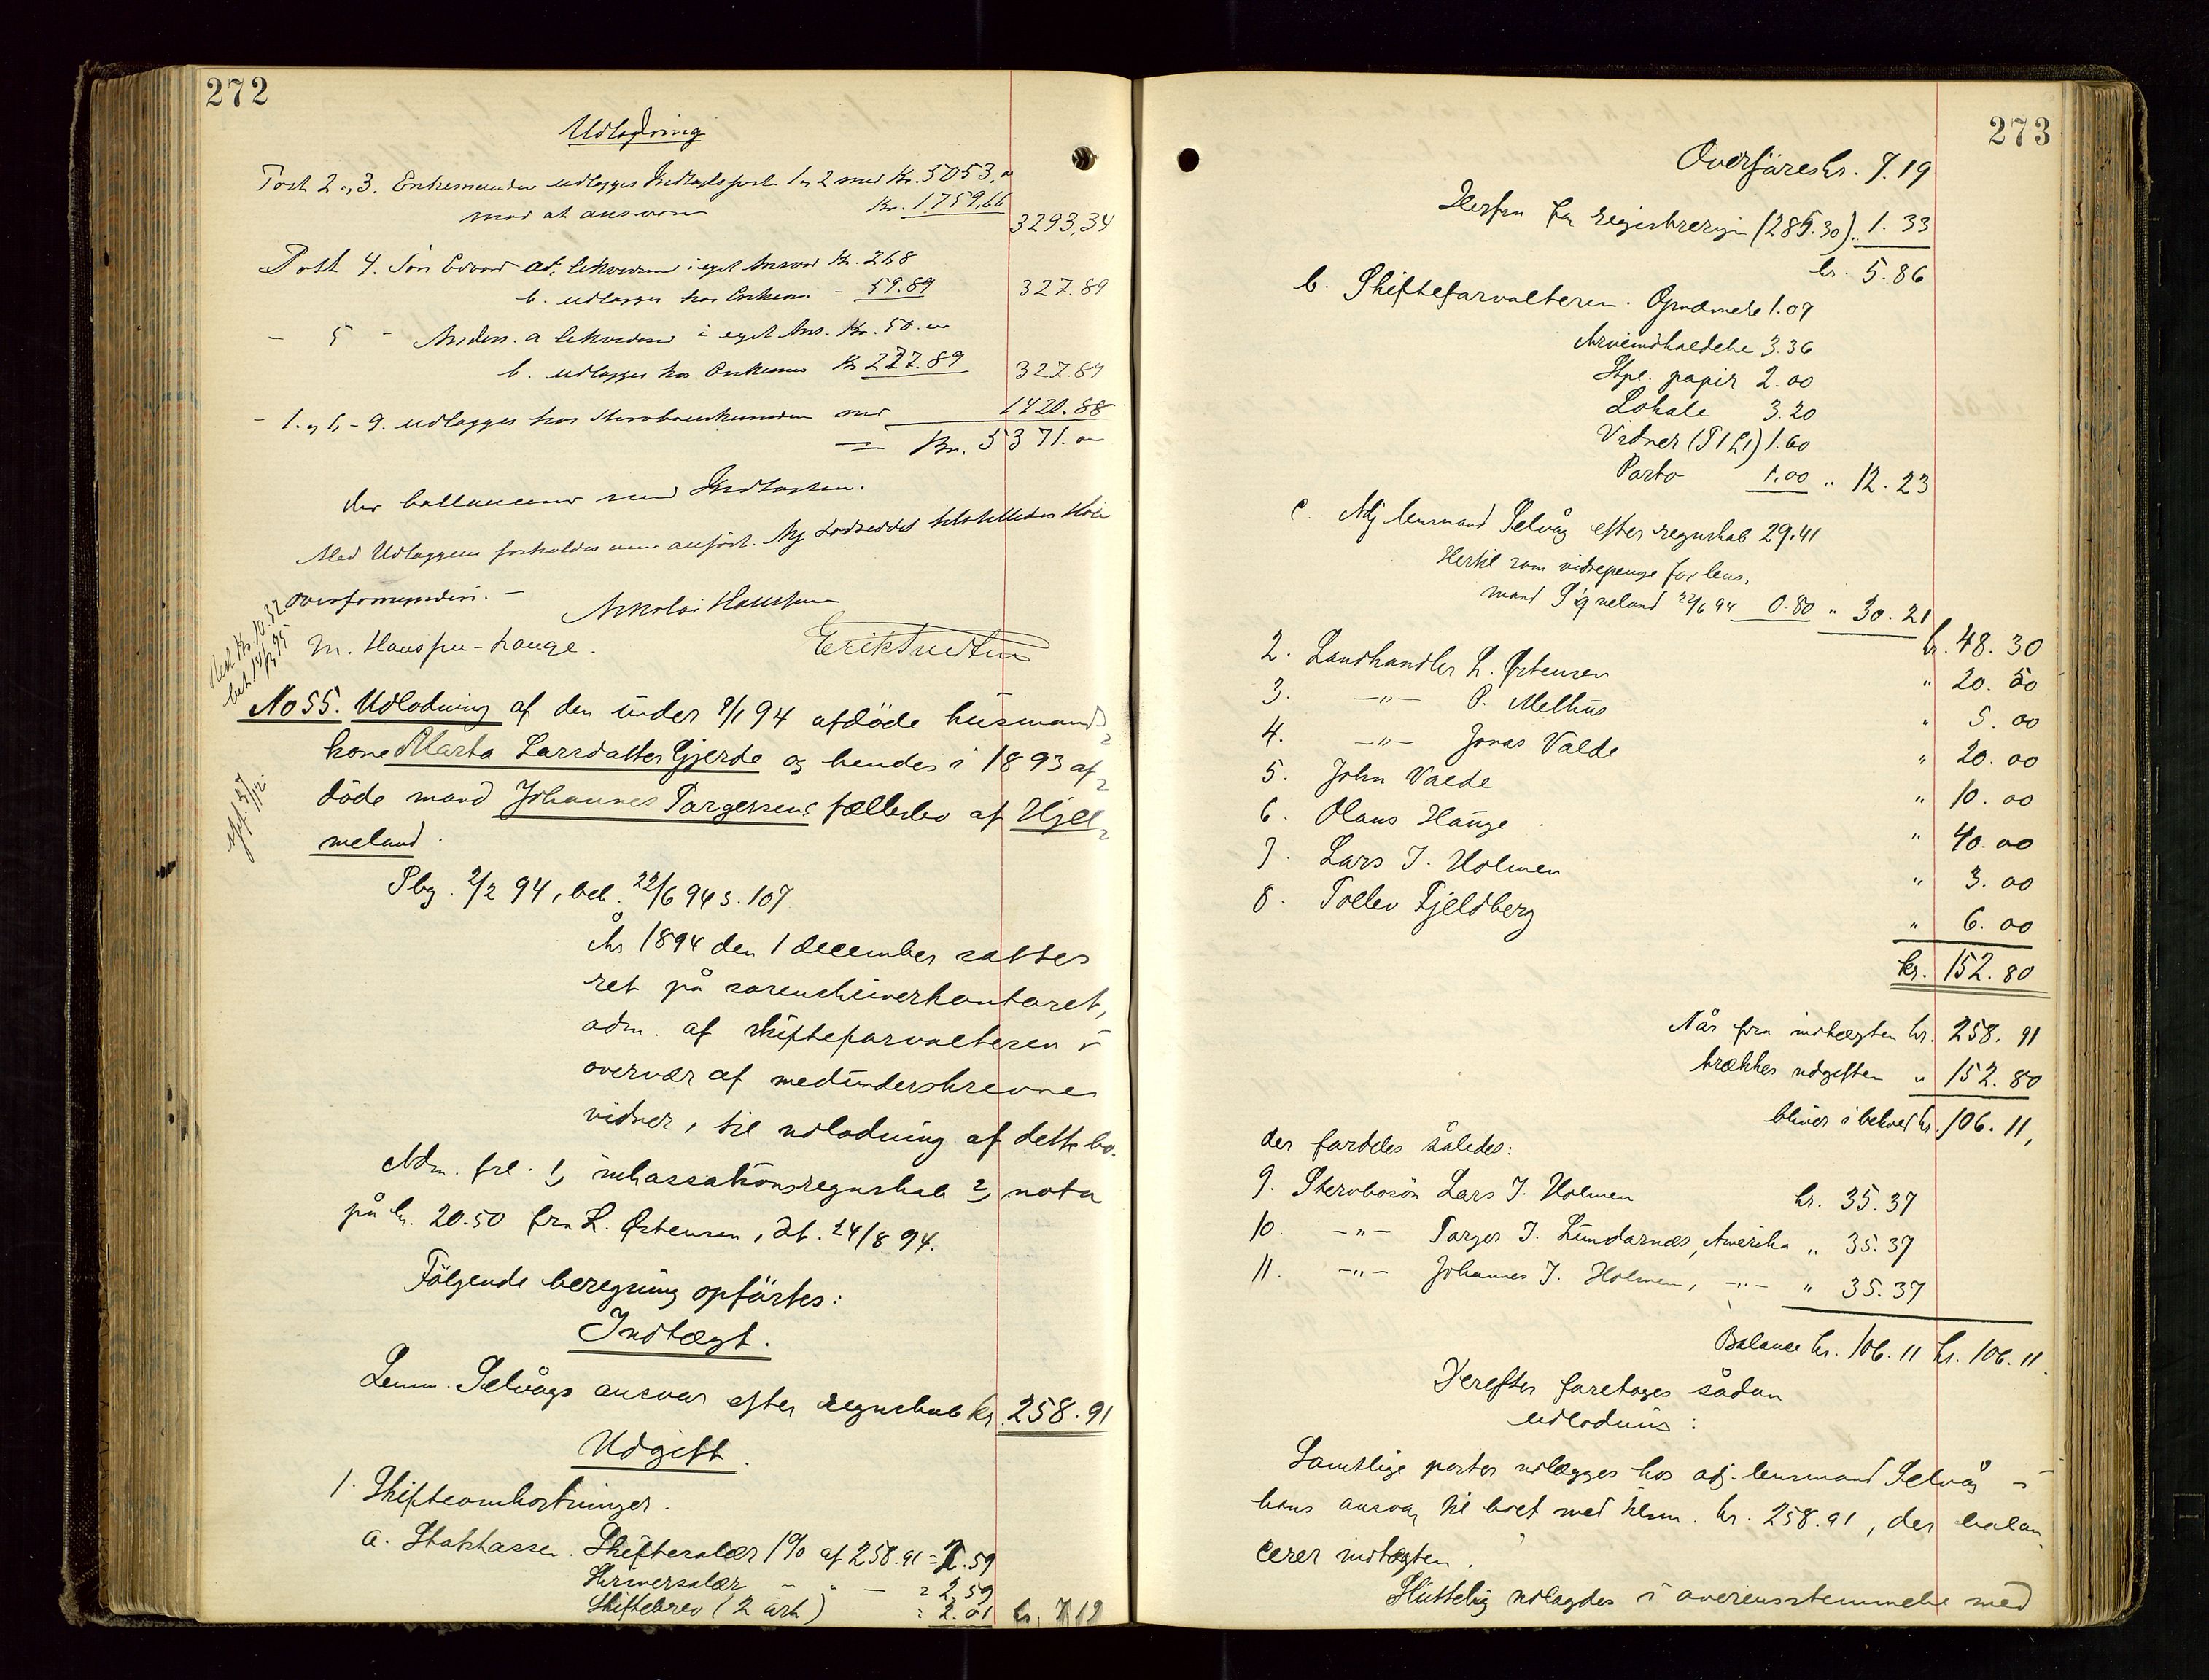 272
Udlodning
Post 2 og 3. Enkemanden udlægges Indtægtspost 1 og 2 med Kr. 5053,"
mod at ansvare Kr. 1759,66 3293,34
Post 4. Sön Edvard a, likviderer i eget Ansvar Kr. 268
b. udlægges hos Enkem. - 59.89 327.89
- 5 - Anders. a likviderer i eget Ans. Kr. 50.
b. udlægges hos Enkem. Kr 277.89 327.89
- 1. og 6-9. udlægges hos med 1421.88
= Kr. 5371.
der ballancerer med Indtægten.
Med Udlæggene forholdes som anfört.
overformynderi. -
Nikolai Hausken
M. Hausken-Hauge. Erik Knutsen
No 55. Udlodning af den under 8/1 94 afdöde husmands
kone Marta Larsdatter Gjerde og hendes i 1893 af
döde mand Johannes Torgersens fællesbo af Hjel
meland.
Pbg. 2/2 94, beh. 22/6 94 s. 107.
År 1894 den 1 december sattes
ret på sorenskriverkontoret,
adm. af skifteforvalteren i
overvær af medunderskrevne
vidner, til udlodning af dette bo.
Adm. frl. 1, inkassationsregnskab 2, nota
på kr. 20.50 fra L. Østensen, dt. 24/8 94.
Følgende beregning opførtes:
Indtægt.
Lensm. Selvågs ansvar efter regnskab kr. 258.91
Udgift.
1. Skifteomkostninger.
a. Statskassen. Skiftesalær 1% af 258.91 = 2.59
Skriversalær - " - = 2.59
Skiftebrev (2 ark) = 2.01 kr. 7.19
273
Overföres kr. 7.19
Herfra for registreringen (285.30) .. 1.33
kr. 5.86
b. Skifteforvalteren. Opnævnelse 1.07
Arveindkaldelse 3.36
Stpl. papir 2.00
Lokale 3.20
Vidner (T1 L1) 1.60
Porto 1.00 " 12.23
c. Adj lensmand Selvåg efter regnskab 29.41
Hertil som vidnepenge for lens.
mand Signeland 22/6 94 0.80 " 30.21
kr. 48.30
2. Landhandler L. Østensen " 20.50
3. -"- P. Melhus " 5.00
4. -"- Jonas Valde " 20.00
5. John Valde " 10.00
6. Olaus Hauge " 40.00
7. Lars J. Holmen " 3.00
8. Tollev Fjeldberg " 6.00
kr. 152.80
Når fra indtægten kr. 258.91
trækkes udgiften " 152.80
bliver i behold kr. 106.11,
der fordeles således:
9. Stervbosön Lars J. Holmen kr. 35.37
10. -"- Torger J. Lundarnæs, Amerika " 35.37
11. -"- Johannes J. Holmen, -"- " 35.37
Balance kr. 106.11 kr. 106.11.
Derefter foretoges sådan
udlodning:
Samtlige poster udlægges hos adj. lensmand Selvåg i
hans ansvar til boet med tilsm. kr. 258.91, der balan
cerer indtægten.
Sluttelig udlagdes i overensstemmelse med